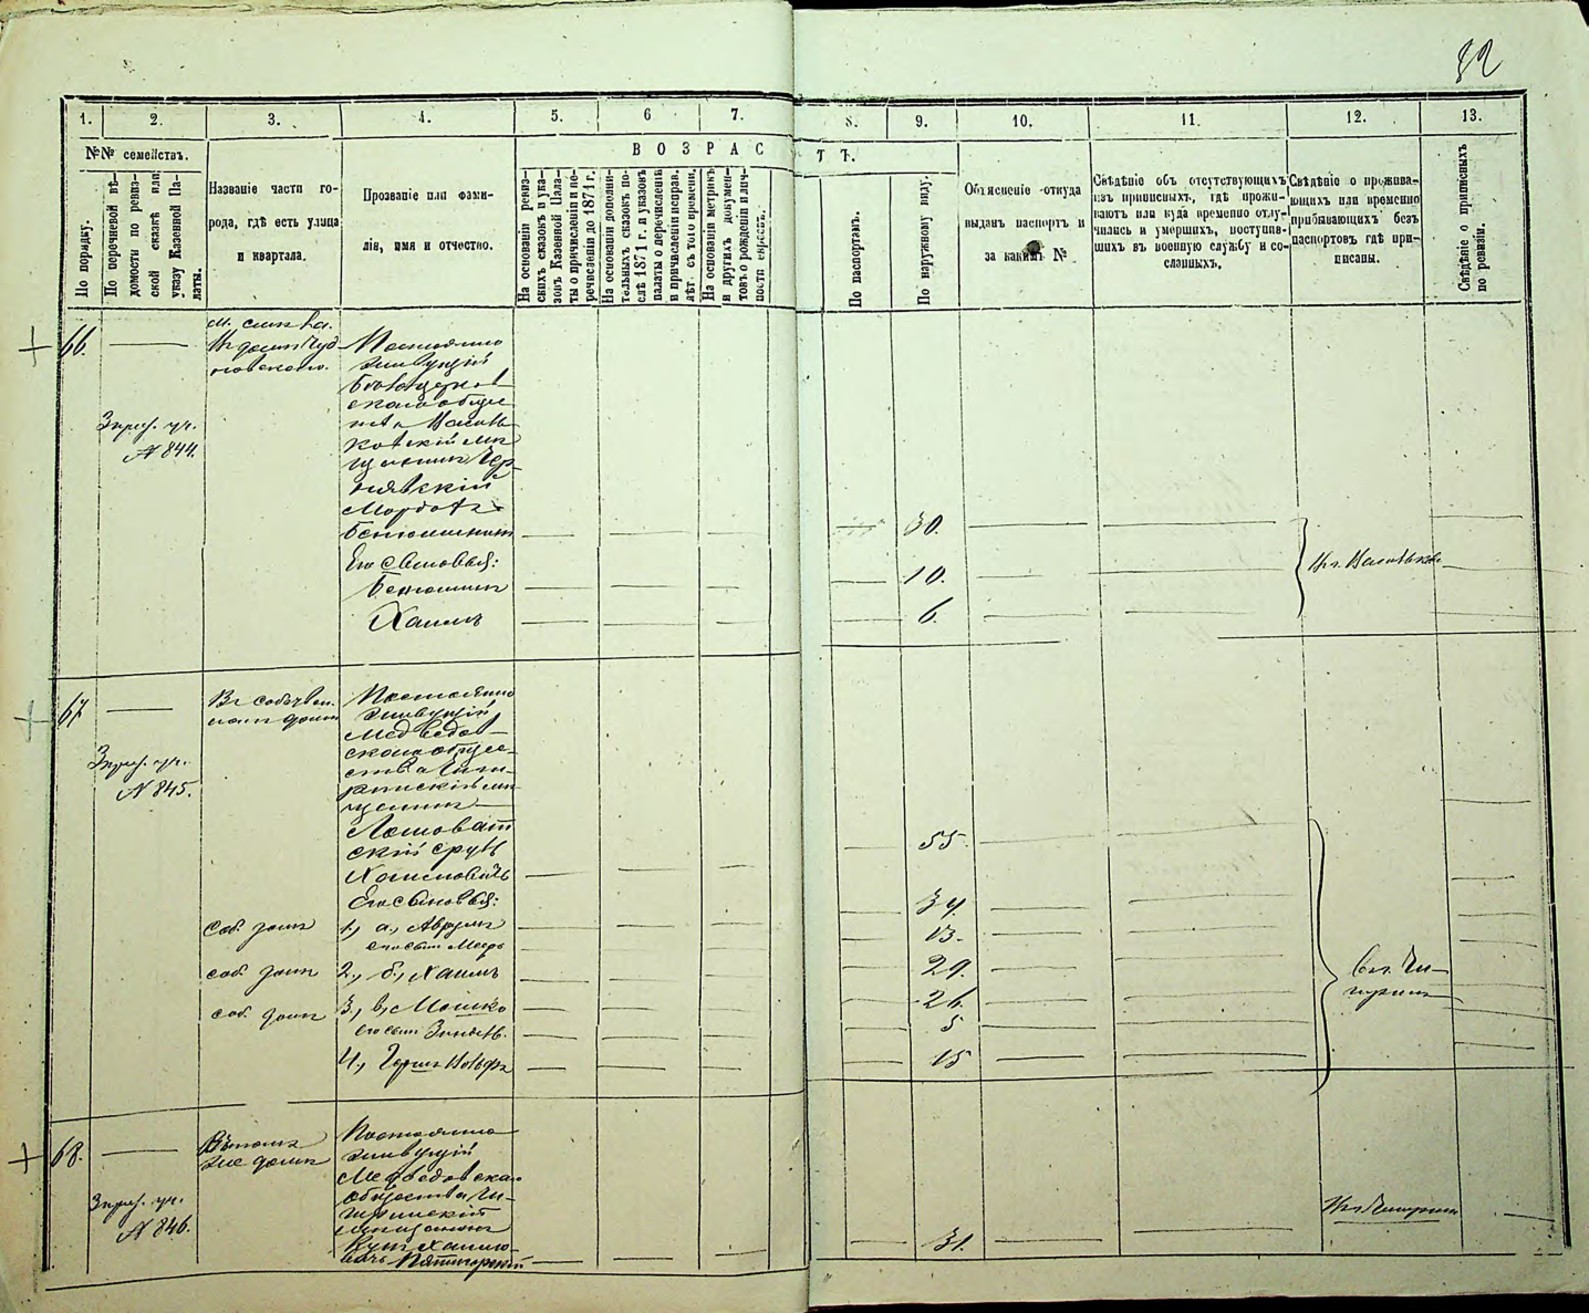 82
1.
2.
3.
4.
5.
6
7.
8.
9.
10.
11.
12.
13.
№№ семействъ.
ВОЗРАСТЪ.
По порядку.
По перечневой вѣ-
домости по ревиз-
ской сказкѣ или
указу Казенной Па-
латы.
Названіе части го-
рода, гдѣ есть улица
и кварталa.
Прозваніе или фами-
лія, имя и отчество.
На основаніи ревиз-
скихъ сказокъ и ука-
зовъ Казенной Пала-
ты о причисленіи и пе-
речисленіи до 1871 г.
На основаніи дополни-
тельныхъ сказокъ по-
слѣ 1871 г. и указовъ
палаты о перечисленіи
и причисленіи исправ.
лѣт. съ того времени.
На основаніи метрикъ
и другихъ докумен-
товъ о рожденіи и лич-
ности евреевъ.
По паспортамъ.
По наружному виду.
Объясненіе откуда
выданъ паспортъ и
за какимъ №
Свѣдѣніе объ отсутствующихъ
изъ приписныхъ, гдѣ прожи-
ваютъ или куда временно отлу-
чились и умершихъ, поступив-
шихъ въ военную службу и со-
сланныхъ.
Свѣдѣніе о прожива-
ющихъ или временно
прибывающихъ безъ
паспортовъ гдѣ при-
писаны.
Свѣдѣніе о приписныхъ
по ревизіи.
66.
№ 844.
Постоянно
живущій
Бѣлоцерков
скаго общес
тва Василь
ковскій мѣ
щанинъ Чер
нявскій
Мордко
30.
Его сыновья:
Беніоминъ
10.
Хаимъ
6.
67
Въ собствен.
номъ домѣ
№ 845.
Постоянно
живущій
Медведов
скаго общес
тва Чиги
ринскій мѣ
щанинъ
Лошоват
скій Сруль
Хаимовичъ
55.
Его сыновья:
соб. домъ
1., а., Аврумъ
34.
его сынъ Меерь
13.
соб. домъ
2., б., Хаимъ
29.
соб. домъ
3., в., Мошко
26.
его сынъ
5
4., Гершъ Вольфъ
15
въ г. Чи-
гирин
68.
Въ томъ
же домѣ
№ 846.
Постоянно
живущій
Медведовскаго
общества Чи-
гиринскій
мѣщанинъ
Хаимо-
вичъ Пятигорскій
31.